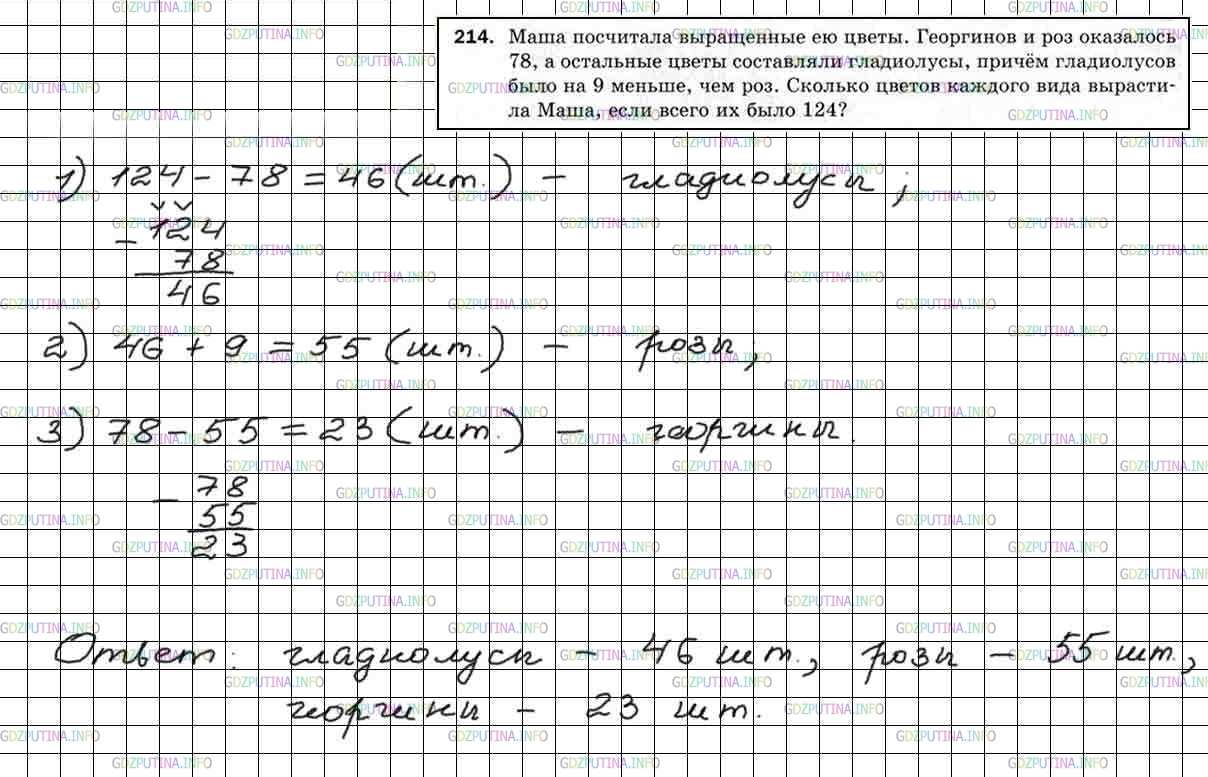 214. Маша посчитала выращенные ею цветы. Георгинов и роз оказалось
78, а остальные цветы составляли гладиолусы, причём гладиолусов
было на 9 меньше, чем роз. Сколько цветов каждого вида вырасти-
ла Маша, если всего их было 124?
1) 124 - 78 = 46 (шт.) - гладиолусы;
- 124
78
46
2) 46 + 9 = 55 (шт.) - розы;
3) 78 - 55 = 23 (шт.) - георгины.
- 78
55
23
Ответ: гладиолусы - 46 шт., розы - 55 шт.,
георгины - 23 шт.
GDZPUTINA.INFO